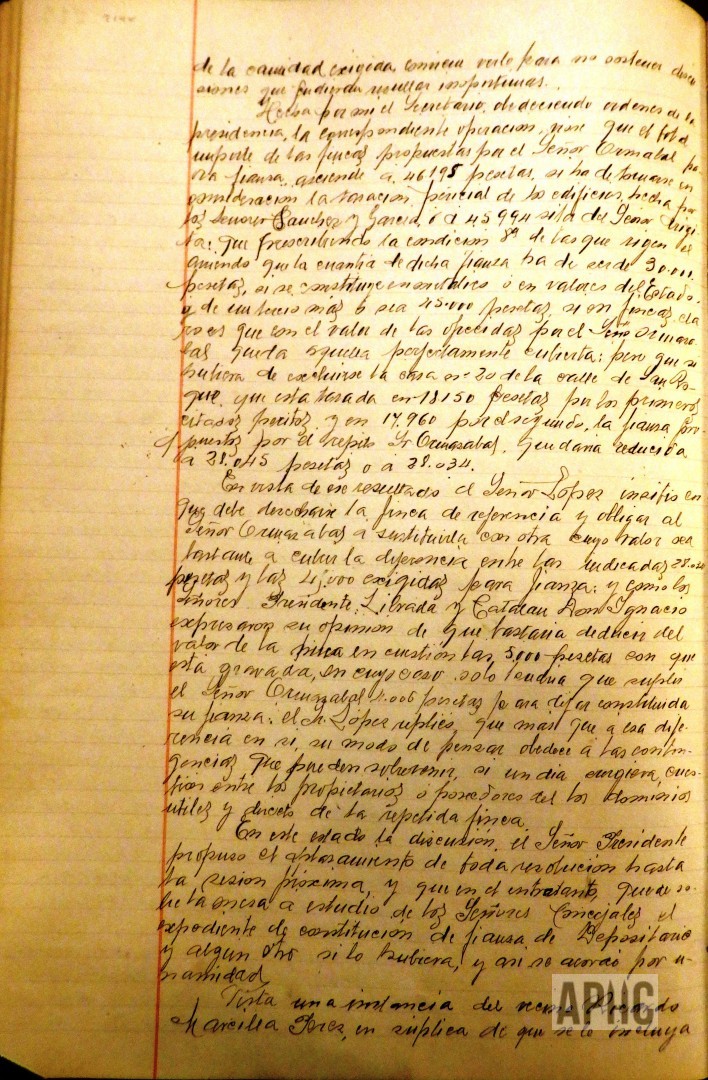 de la cantidad exigida, convien verlo para no sostener discu
siones que pudieran resultar inoportunas.
Hecha por mi el Secretario, obedeciendo ordenes de la
presidencia, la correspondiente operacion, vióse que el total
importe de las fincas propuestas por el Señor Ormazabal pa
ra fianza, asciende á 46195 pesetas, si ha de tomarse en
consideración la tasacion pericial de los edificios, hecha por
los Señores Sanchez y Garcia, ó á 45994 si la del Señor
que prescribiendo la condición 8ª de las que rigen el
que la cuantia de dicha fianza ha de ser de 30.000
pesetas, si se constituye en metálico ó en valores del Estado,
y de un tercio más ó sea 45.000 pesetas, si en fincas, cla
ro es que con el valor de las ofrecidas por el Señor Ormaza
bal queda aquella perfectamente cubierta; pero que si
hubiera de excluirse la casa nº 20 de la calle de San Ro
que, que está tasada en 18150 pesetas por los primeros
citados peritos y en 17.960 por el segundo, la fianza pro
puesta por el repito Sr Ormazabal, quedaria reducida
á 28.045 pesetas o á 28.034.
En vista de ese resultado el Señor López insistió en
que debe desecharse la finca de referencia y obligar al
Señor Ormazabal a sustituirla con otra cuyo valor sea
bastante a cubrir la diferencia entre las indicadas 28.034
pesetas y las 45.000 exigidas para fianza; y como los
Señores Presidente, Librada y Catalan Don Ignacio
expresaron su opinion de que bastaria deducir del
valor de la finca en cuestión las 5.000 pesetas con que
está gravada, en cuyo caso solo tendria que suplir
el Señor Ormazabal 4.006 pesetas para dejar constituida
su fianza; el Sr. López replicó, que más que a esa dife-
rencia en si, su modo de pensar obedece á las contin-
gencias que pueden sobrevenir, si un dia surgiera cues
tion entre los propietarios ó poseedores del los dominios
utiles y directo de la repetida finca.
En este estado la discusión, el Señor Presidente
propuso el aplazamiento de toda resolución hasta
la sesion próxima, y que en el entretanto, quede so-
bre la mesa a estudio de los Señores Concejales el
expediente de constitución de fianza de Depositario
y algun otro si lo hubiera, y asi se acordó por u-
nanimidad.
Vista una instancia del vecino Ricardo
Marcilla Perez, en suplica de que se le incluya
APHC